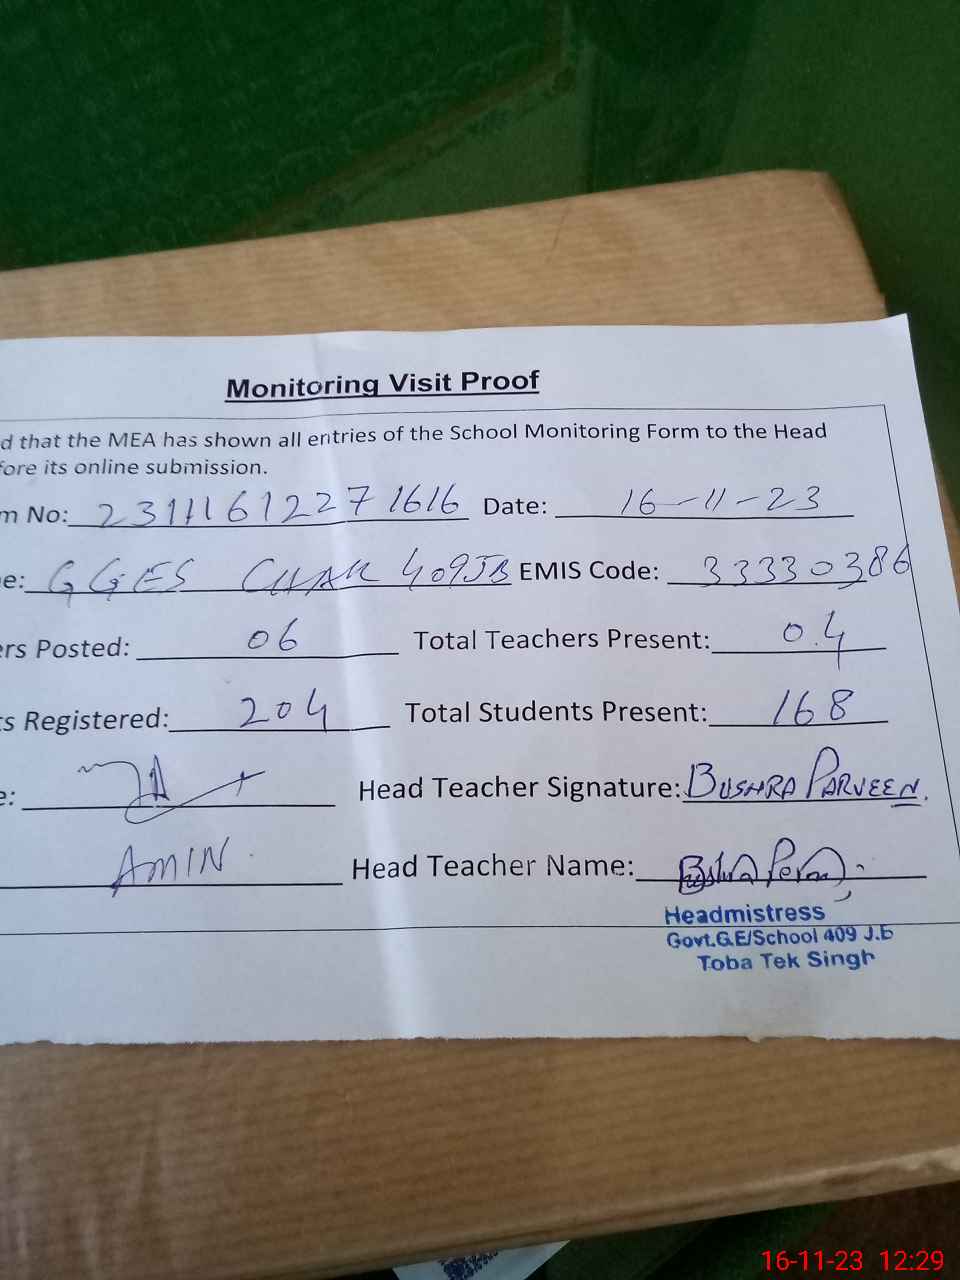 Monitoring Visit Proof
d that the MEA has shown all entries of the School Monitoring Form to the Head
fore its online submission.
m No: 2311161227 1616 Date: 16-11-23
e: GGES CHAK 409JB EMIS Code: 33330386
ers Posted: 06 Total Teachers Present: 04
ts Registered: 204 Total Students Present: 168
e: Head Teacher Signature: BUSHRA PARVEEN.
AMIN Head Teacher Name:
Headmistress
Govt.G.E/School 409 J.B
Toba Tek Singh
16-11-23 12:29